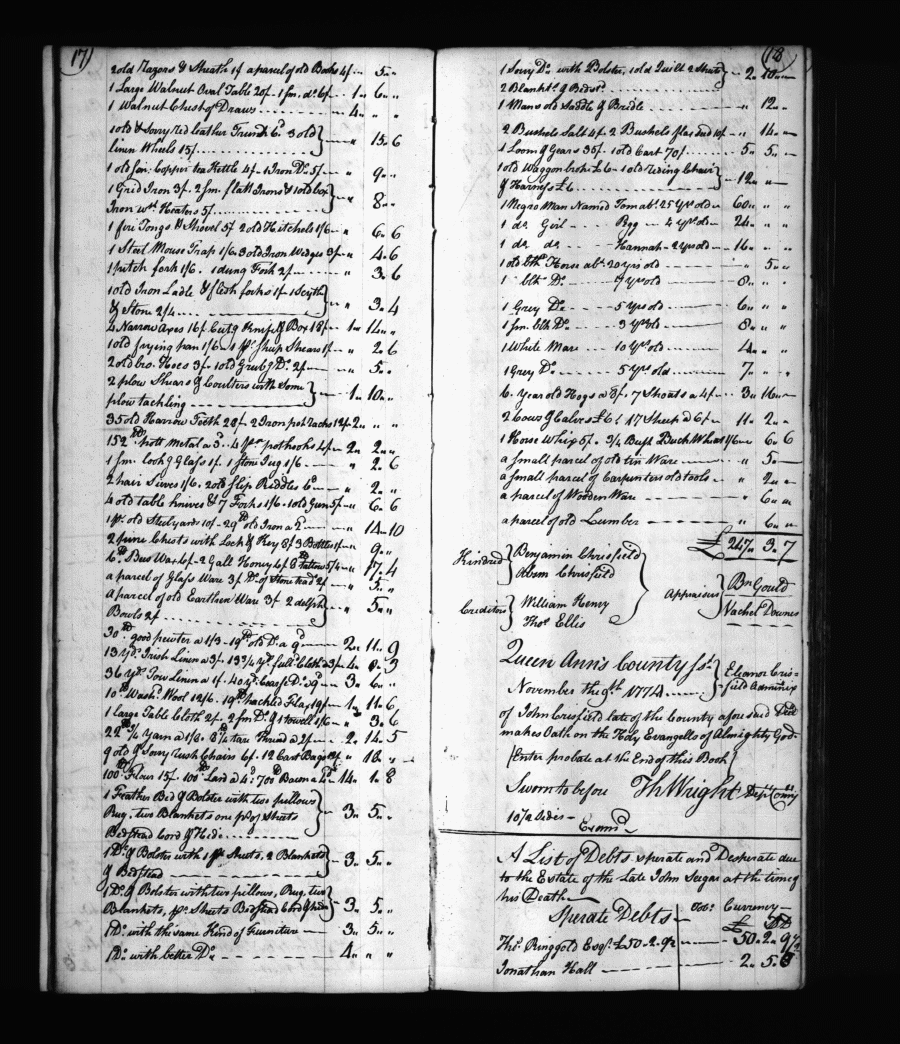 17
2 old Razors & Sheath 1/ a parcel of old Books 4/ - " 5 " "
1 Large Walnut Oval Table 20/ - 1 sm. do. 6/ - 1 " 6 " "
1 Walnut Chest of Draws - 4 " " " "
1 old & Sorry red leather Trunk 6d. 3 old
linen Wheels 15/ - " 15 " 6
1 old Copper tea Kettle 4/ - 1 Iron Do. 5/ - " 9 " "
1 Grid Iron 3/. 2 sm. flatt Irons & 1 old box
Iron wth. Heaters 5/. - " 8 " "
1 fire Tongs & Shovel 5/ 2 old Hitchels 1/6 - " 6 " 6
1 Steel Mouse Trap 1/6. 3 old Iron Wedges 3/ - " 4 " 6
1 pitch fork 1/6. 1 dung Fork 2/ - " 3 " 6
1 old Iron Ladle & flesh fork 1/. 1 Scyth
& Stone 2/4 - " 3 " 4
4 Narrow Axes 16/ Cutg Knife & Box 18/ - 1 " 14 " "
1 old frying pan 1/6 - 1 pr. Sheep Shears 1/ - " 2 " 6
2 old bro. Hoes 3/- 1 old Grubg Do. 2/ - " 5 " "
2 plow Shears & Coulters with Some
plow tackling - 1 " 10 " "
35 old Harrow Teeth 28/- 2 Iron pot racks 12/ 2 " " " "
152 lb. pott Metal a 3d. 4 pr. pothooks 4/ - 2 " 2 " "
1 sm. lookg Glass 1/. 1 Stone Jug 1/6 - " 2 " 6
2 hair Sieves 1/6. 2 old Slip Riddles 6d. - " 2 " "
4 old table knives & 7 Forks 1/6 - 1 old Gun 5/ - " 6 " 6
1 pr. old Steelyards 10/- 29 lb old Iron a 2d. - " 14 " 10
2 pine Chests with Lock & Key 8/ 3 Bottles 1/ - " 9 " "
6 lb. Bees Wax 6/- 2 Gall Honey 6/ 8 lb Tallow 5/4 - " 17 " 4
a parcel of Glass Ware 3/ Do. of Stone head 2/ - " 5 " "
a parcel of old Earthen Ware 3/ 2 delph
Bowls 2/ - " 5 " "
30 lb good pewter a 1/3 - 19 lb old Do. a 9d - 2 " 11 " 9
13 yd. Irish Linen a 3/- 13 3/4 yd. full'd Cloth a 3/ - 4 " 0 " 3
36 yd. Tow Linen a 1/- 40 yd. Coarse Do. a 9d - 3 " 6 " "
10 lb Wash'd. Wool 12/6. 19 lb hackled Flax 19/ - 1 " 11 " 6
1 large Table Cloth 2/- 2 sm. Do. & 1 towell 1/6 - " 3 " 6
22 lb 3/4 Yarn a 1/6. 8 lb 1/4 tare Thread a 2/ - 2 " 14 " 5
9 old & Sorry rush Chairs 6/- 12 Cart Bags 12/ - " 18 " "
100 lb Flour 15/- 100 lb Lard a 4d. 700 lb Bacon a 4d - 14 " 1 " 8
1 Feather Bed & Bolster with two pillows
Rug, two Blankets one pr. of Sheets
Bedstead Cord & Hide - 3 " 5 " "
1 Do. & Bolster with 1 pr. Sheets, 2 Blankets
& Bedstead - 3 " 5 " "
1 Do. & Bolster with two pillows, Rug, two
Blankets, pr. Sheets Bedstead Cord & hide - 3 " 5 " "
1 Do. with the same Kind of Furniture - 3 " 5 " "
1 Do. with better Do. - 4 " " " "
18
1 Sorry Do. with Bolster, 1 old Quilt 2 Sheets
2 Blankts. & Bedstd. - 2 " 10 " "
1 Mans old Saddle & Bridle - " 12 " "
2 Bushels Salt 4/- 2 Bushels flaxseed 10/ - " 14 " "
1 Loom & Gears 35/- 1 old Cart 70/ - 5 " 5 " "
1 old Waggon broke £6 - 1 old riding Chair
& Harness £6 - 12 " " "
1 Negro Man Named Tom abt. 25 Yrs old - 60 " " "
1 do. Girl - Pegg - 4 yrs old - 24 " " "
1 do. do. - Hannah - 2 yrs old - 16 " " "
1 old blk. Horse abt. 20 yrs old - " 5 " "
1 blk Do. 9 yrs old - 8 " " "
1 Grey Do. - 5 yrs old - 6 " " "
1 sm. blk Do. - 3 yrs old - 8 " " "
1 White Mare - 10 Yrs old - 4 " " "
1 Grey Do. - 5 Yrs old - 7 " " "
6 year old Hogs a 8/- 7 Shoats a 4/ - 3 " 16 " "
2 Cows & Calves £6. 17 Sheep a 6/ - 11 " 2 " "
1 Horse Whip 5/. 3/4 Bushl. Buck Wheat 1/6 - " 6 " 6
a small parcel of old tin Ware - " 5 "
a small parcel of Carpenters old tools - " 2 " "
a parcel of Wooden Ware - " 6 " "
a parcel of old Lumber - " 6 " "
£ 247 " 3 " 7
Kindred } Benjamin Chrisfield
Absm Chrisfield
Creditors } William Henry
Thos. Ellis
Appraisers } Bn Gould
Vachel Downes
Queen Ann's County Sst.
November the 9th. 1774 } Eleanor Cris=
field Administx
of John Crisfield late of the County aforesaid Decd.
makes Oath on the Holy Evangells of Almighty God
(Enter probate at the End of this Book)
Sworn to before Th Wright Depy Comy
10 1/2 Sides -
Examd.
A List of Debts sperate and Desperate due
to the Estate of the Late John Seegar at the time of
his Death
Sperate Debts - Currency -
£
Thos. Ringgold Esqr. £50.2.9 1/2 - 50 " 2 " 9 1/2
Jonathan Hall - 2 " 5 " 0